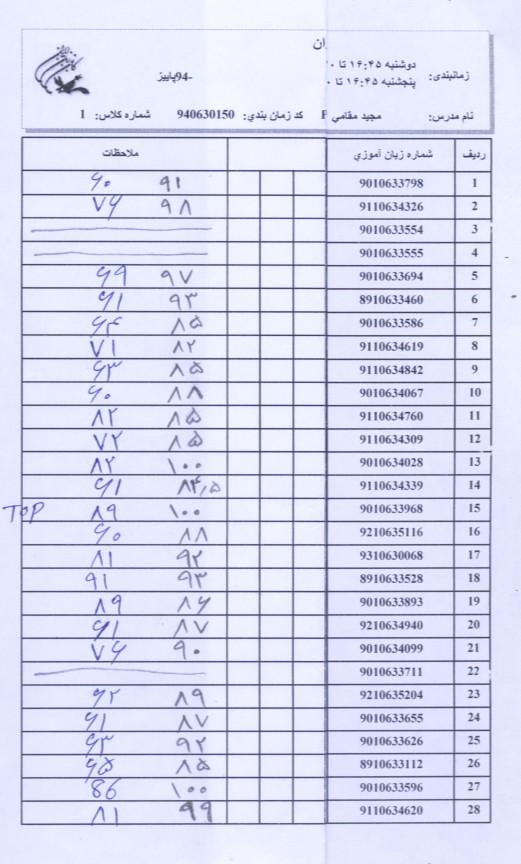 ان
زمانبندی: دوشنبه ۱۶:۴۵ تا ۰
پنجشنبه ۱۶:۴۵ تا ۰
-94پاییز
نام مدرس: مجید مقامي F کد زمان بندي: 940630150 شماره کلاس: 1
ردیف شماره زبان آموزي ملاحظات
1 9010633798 ۹۱ ۶۰
2 9110634326 ۹۸ ۷۶
3 9010633554
4 9010633555
5 9010633694 ۹۷ ۶۹
6 8910633460 ۹۳ ۶۱
7 9010633586 ۸۵ ۶۴
8 9110634619 ۸۲ ۷۱
9 9110634842 ۸۵ ۶۳
10 9010634067 ۸۸ ۶۰
11 9110634760 ۸۵ ۸۲
12 9110634309 ۸۵ ۷۲
13 9010634028 ۱۰۰ ۸۲
14 9110634339 ۸۴٫۵ ۶۱
15 9010633968 ۱۰۰ ۸۹ TOP
16 9210635116 ۸۸ ۶۰
17 9310630068 ۹۲ ۸۱
18 8910633528 ۹۳ ۹۱
19 9010633893 ۸۶ ۸۹
20 9210634940 ۸۷ ۶۱
21 9010634099 ۹۰ ۷۶
22 9010633711
23 9210635204 ۸۹ ۶۲
24 9010633655 ۸۷ ۶۱
25 9010633626 ۹۲ ۶۳
26 8910633112 ۸۵ ۶۵
27 9010633596 ۱۰۰ 86
28 9110634620 ۹۹ ۸۱